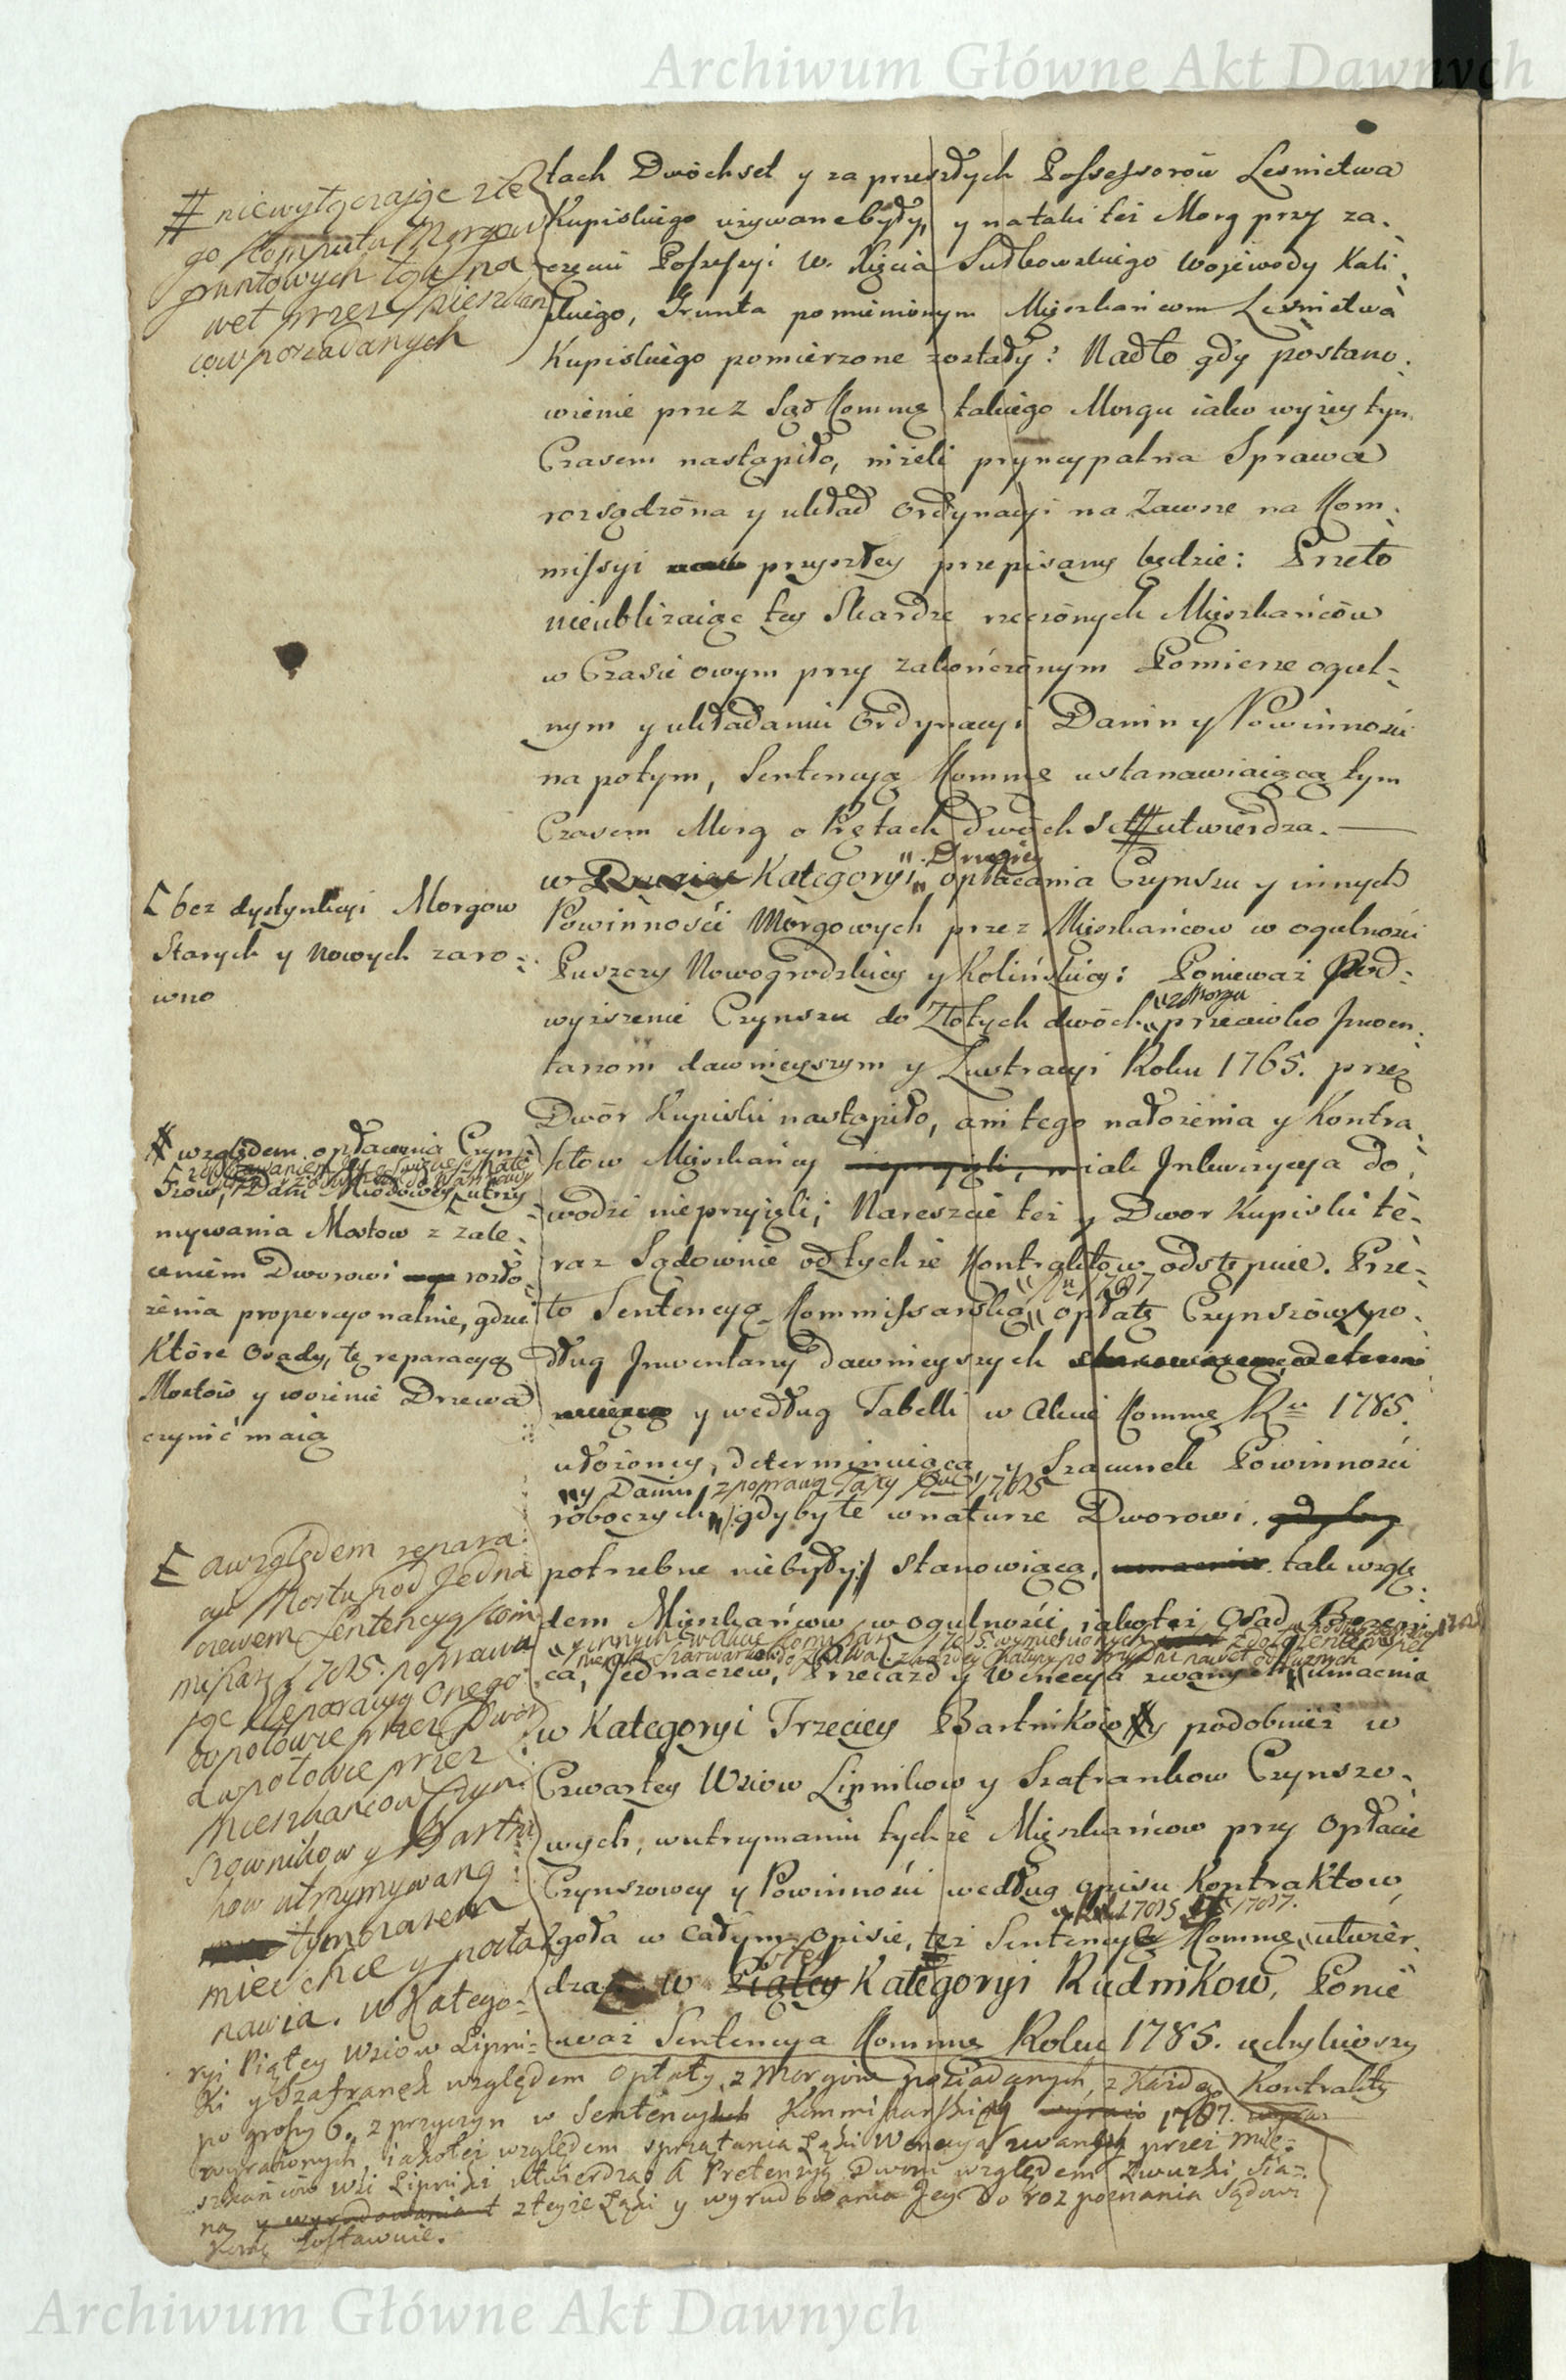 Archiwum Główne Akt Dawnych
tach Dwóchset y za przeszłych Possessorów Lesnictwa
Kupiskiego używane były, y na taki też Morg przy za-
częciu Possessyi W. Xięcia Sułkowskiego Wojewody Kali-
skiego, Grunta pomienionym Mieszkańcom Leśnictwa
Kupiskiego pomierzone zostały: Nadto gdy postano-
wienie przez Sąd Kommę takiego Morgu iako wyżey tym
Czasem nastąpiło, nizeli pryncypalna Sprawa
rozsądzona y układ Ordynacyi na Zawsze na Kom-
missyi przyszłey przepisany będzie: Przeto
nieubliżaiąc tey Skardze rzeczonych Mieszkańców
w Czasie owym przy zakończonym Pomierze ogul-
nym y układaniu Ordynacyi Danin y Powinności
na potym, Sentencyą Kommę ustanawiaiącą tym
Czasem Morg o Prętach dwóch set # utwierdza.
# niewyłączaiąc z te
go komputu Morgow
gruntowych łąk na
wet przez Mieszkan
cow posiadanych
w Kategoryi Drugiey opłacania Czynszu y innych
Powinności Morgowych przez Mieszkańcow w ogulności
Puszczy Nowogrodzkiey y Kolińskiey: Ponieważ Pod-
wyższenie Czynszu do Złotych dwóch z Morgu przeciwko Inwen-
tarzom dawnieyszym y Lustracyi Roku 1765. przez
Dwór Kupiski nastąpiło, ani tego nałożenia y Kontra-
któw Mieszkańcy iak Inkwizycya do-
wodzi nieprzyieli; Nareszcie też y Dwor Kupiski te-
raz Sądownie od tychże Kontraktow odstępuie. Prze-
to Sentencyą Kommissarską Ru 1787 opłatę Czynszów po-
dług Inwentarzy dawnieyszych
y według Tabelli w Akcie Kommę Ru 1785.
ułożoney, determinuiącą y Szacunek Powinności
y Danin z poprawą Taxy 1785
roboczych gdyby te w naturze Dworowi
potrzebne niebyły stanowiącą, tak wzglę-
dem Mieszkańcow w ogulności, iakoteż Osad
y innych w Akcie Kommissar: 1785. wymienionych
ca, Jednaczew, Przeiazd y Wenecya zwanych umacnia
[ bez dystynkcyi Morgow
Starych y Nowych zaro-
wno
# względem opłacania Czyn-
szow, Dani Miodowey, utrzy
mywania Mostow z zale-
ceniem Dworowi rozło-
żenia proporcyonalnie, gdzie
Które Osady, tę reparacyą
Mostów y wożenie Drzewa
czynić maią
w Kategoryi Trzeciey Bartnikow # y podobnież w
Czwartey Wsiow Lipnikow y Szafrankow Czynszo-
wych, w utrzymaniu tychże Mieszkańcow przy Opłacie
Czynszowey y Powinności według opisu Kontraktow,
zgoła w całym opisie, też Sentencyą Kommę 1785 1787. utwier-
dza w Szóstey Kategoryi Rudnikow, Ponie
waż Sentencya Kommę Roku 1785. uchyliwszy
Kontrakty
[ a względem repara
cyi Mostu pod Jedna
czewem Sentencyą Kom
missar: 1785. poprawia
iąc Reparacyą onego
w połowie przez Dwór
a w połowie przez
Mieszkańcow Czyn-
szownikow y Bartni
kow utrzymywaną
tym czasem
mieć chce y posta
nawia. w Katego-
ryi Piątey Wsiow Lipni-
ki y Szafranek względem Opłaty z Morgów posiadanych, z każdego
po groszy 6. z przyczyn w Sentencyach Kommissarskiey 1787.
wyrażonych, iakoteż względem sprzątania Łąki Wenecya zwaney przez Mie-
szkańców Wsi Lipniki utwierdza, A Pretensyą Dworu względem Zwuzki Sia-
na, z teyże Łąki y wyrudowania Jey do rozpoznania Sądow:
zostawuie.
Archiwum Główne Akt Dawnych